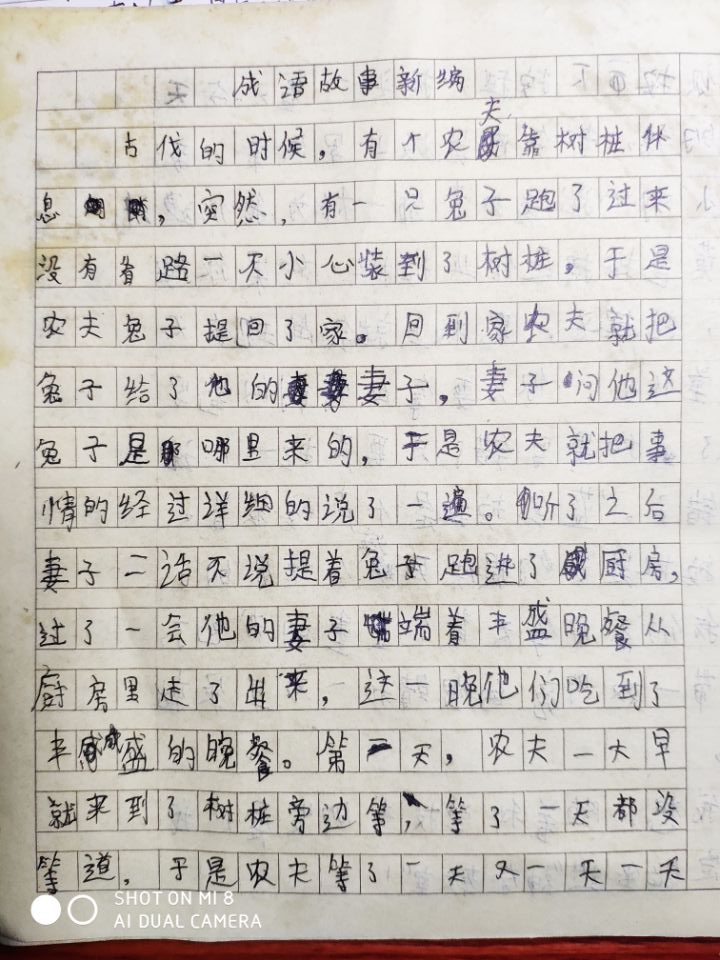 成语故事新编
古代的时候，有个农夫靠树桩休
息，突然，有一只兔子跑了过来
没有看路一不小心装到了树桩。于是
农夫兔子提回了家。回到家农夫就把
兔子给了他的妻子，妻子问他这
兔子是哪里来的，于是农夫就把事
情的经过详细的说了一遍。听了之后
妻子二话不说提着兔子跑进了厨房，
过了一会他的妻子端着丰盛晚餐从
厨房里走了出来，这一晚他们吃到了
丰盛的晚餐。第二天，农夫一大早
就来到了树桩旁边等，等了一天都没
等道，于是农夫等了一天又一天一天
SHOT ON MI 8
AI DUAL CAMERA